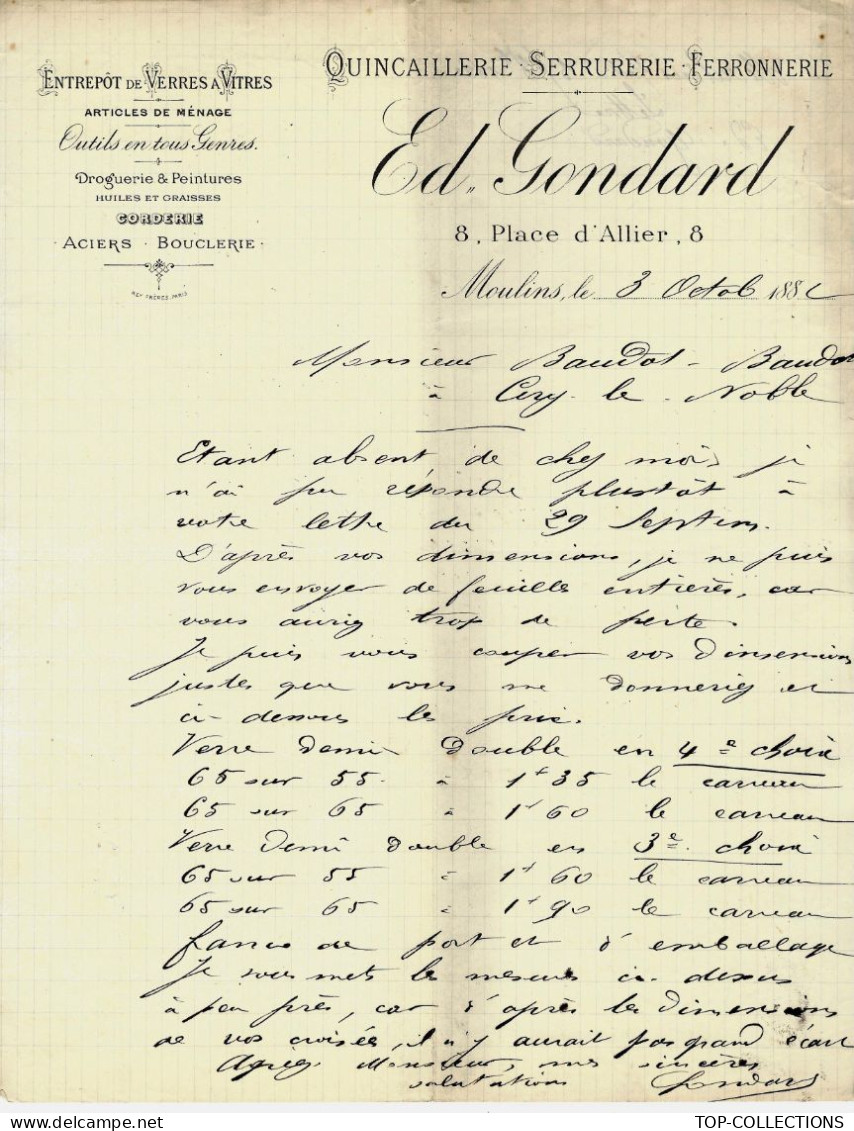 ENTREPÔT DE VERRES A VITRES
ARTICLES DE MÉNAGE
Outils en tous Genres.
Droguerie & Peintures
HUILES ET GRAISSES
CORDERIE
ACIERS · BOUCLERIE ·
REY FRÈRES, PARIS
QUINCAILLERIE · SERRURERIE · FERRONNERIE
Ed. Gondard
8, Place d'Allier, 8
Moulins, le 3 Octob 188
Monsieur Baudot - Baudot
à le Noble
Etant absent de chez mois, je
n'ai pu répondre plustôt à
votre lettre du 29 Septem.
D'après vos dimensions, je ne puis
vous envoyer de feuilles entières, car
vous auriez trop de perte.
Je puis vous couper vos dimensions
justes que vous me donneriez et
ci-dessous les prix.
Verre demi double en 4e choix
65 sur 55 à 1f 35 le carreau
65 sur 65 à 1f 60 le carreau
Verre demi double en 3e choix
65 sur 55 à 1f 60 le carreau
65 sur 65 à 1f 90 le carreau
franco de port et d'emballage
Je vous mets les mesures ci-dessus
à peu près, car d'après les dimensions
de vos croisées, il n'y aurait pas grand écart
Agréez Monsieur, mes sincères
salutations Gondard
TOP-COLLECTIONS